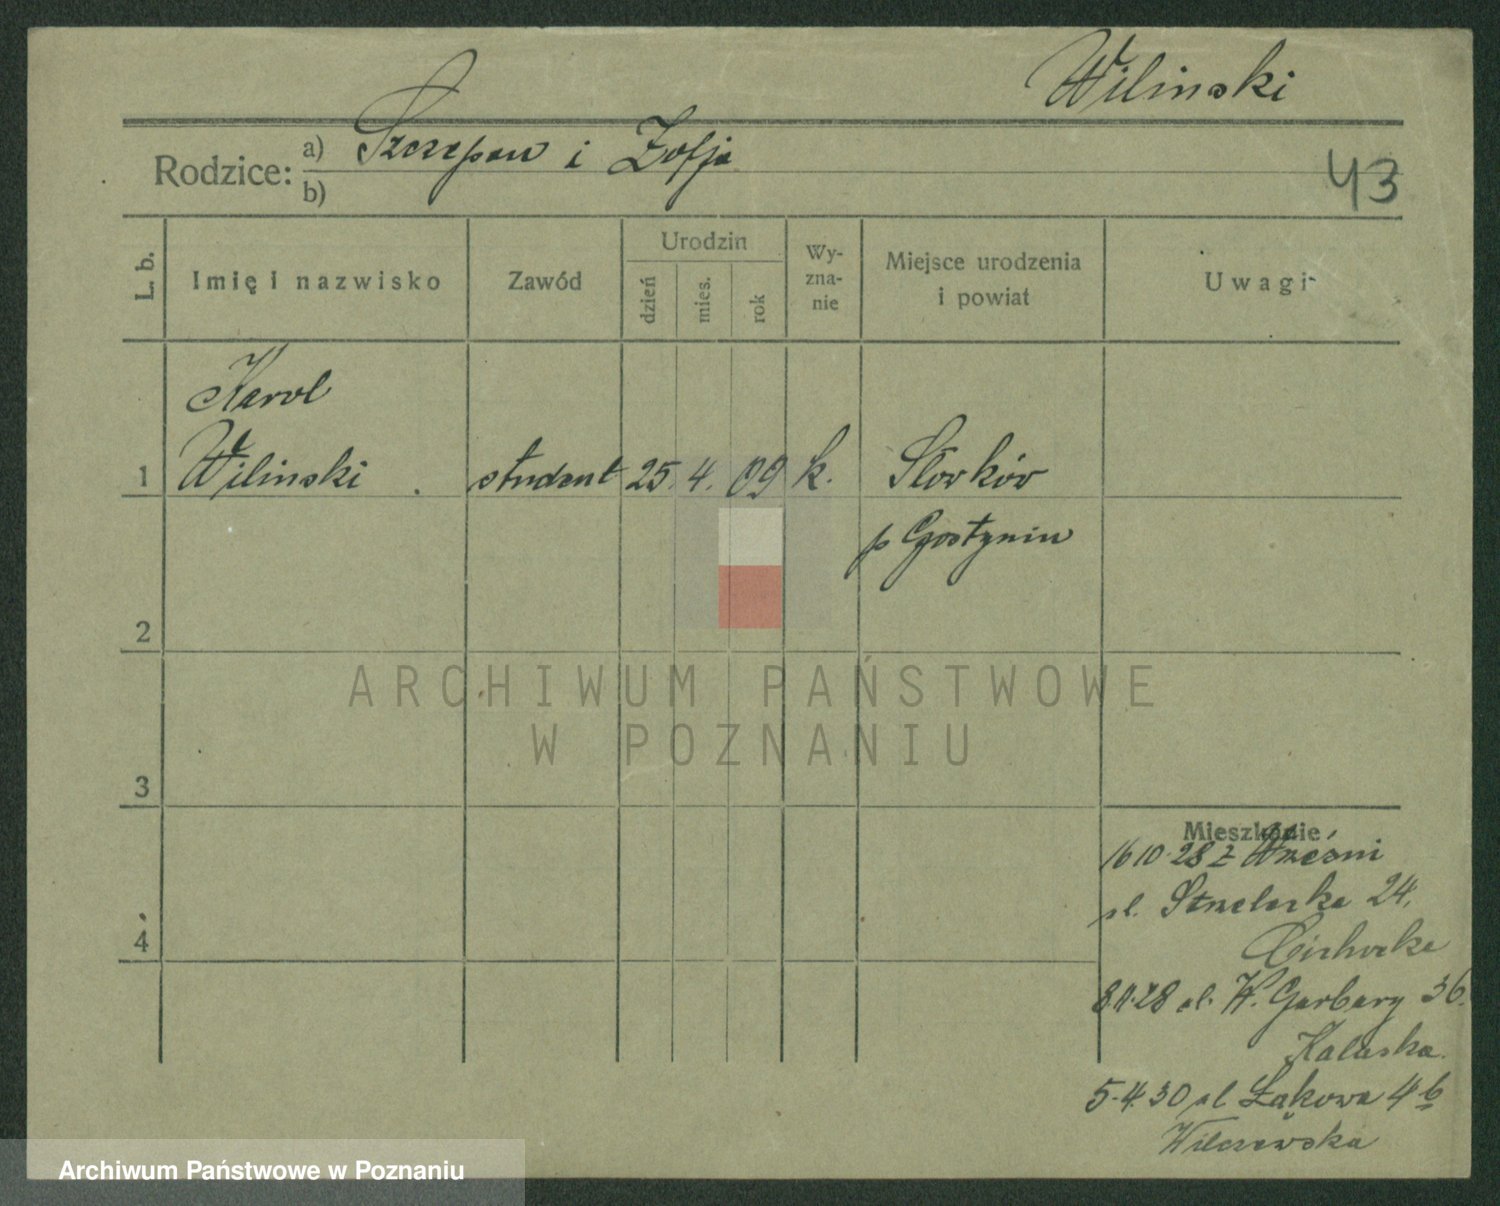 Wilinski
Rodzice:
a) Szczepan i Zofja
b)
43
L. b.
Imię i nazwisko
Zawód
Urodzin
dzień
mies.
rok
Wy-
zna-
nie
Miejsce urodzenia
i powiat
Uwagi
Karol
1 Wilinski student 25. 4. 09 k.
p Gostyniu
2
3
4
Mieszkanie
16 10 28 z Wrześni
ul. Strzelecka 24.
Cichocka
8.11.28 ul. W. Garbary 36.
Kaluska.
5.4.30 ul Łąkowa 4b
Wilczewska
ARCHIWUM PAŃSTWOWE
W POZNANIU
Archiwum Państwowe w Poznaniu